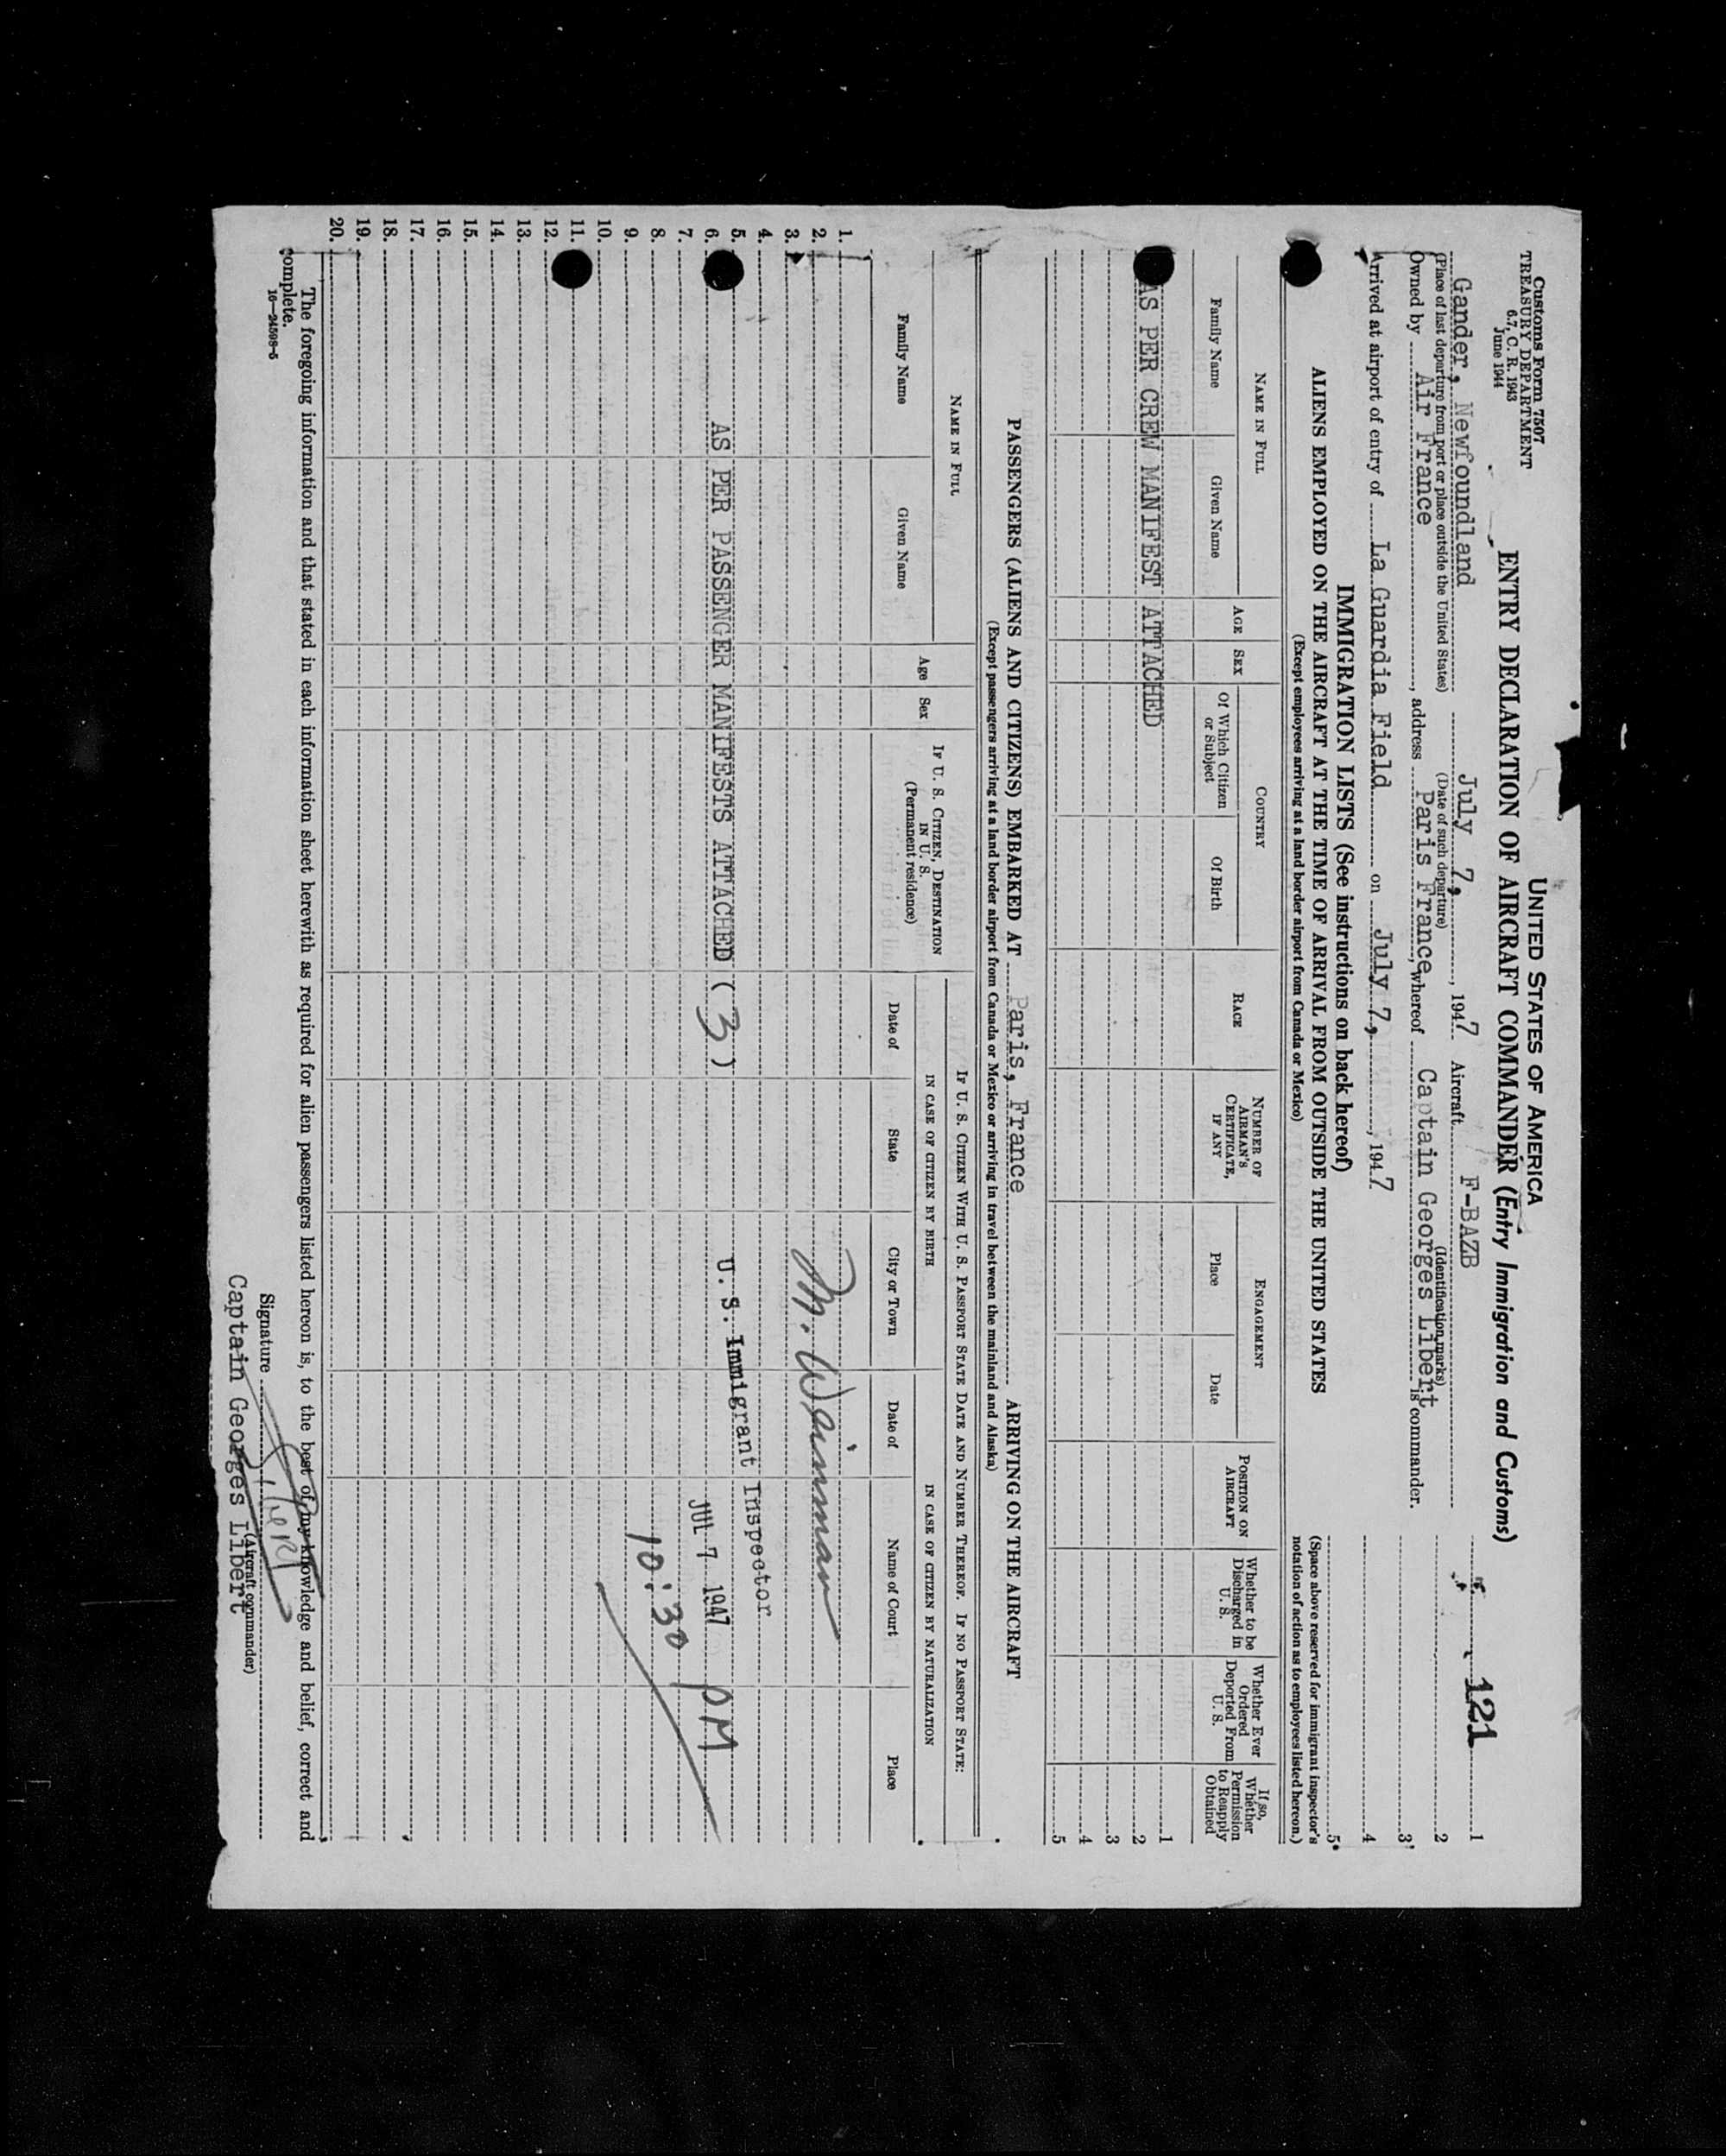 Customs Form 7507
TREASURY DEPARTMENT
6.7, C. R. 1943
June 1944
UNITED STATES OF AMERICA
ENTRY DECLARATION OF AIRCRAFT COMMANDER (Entry Immigration and Customs)
121
Gander, Newfoundland July 7, 1947 Aircraft F-BAZB
(Place of last departure from port or place outside the United States) (Date of such departure) (Identification marks)
Owned by Air France, address Paris France, whereof Captain Georges Libert is commander.
Arrived at airport of entry of La Guardia Field on July 7, 1947
1
2
3
4
5
(Space above reserved for immigrant inspector's notation of action as to employees listed hereon.)
IMMIGRATION LISTS (See instructions on back hereof)
ALIENS EMPLOYED ON THE AIRCRAFT AT THE TIME OF ARRIVAL FROM OUTSIDE THE UNITED STATES
(Except employees arriving at a land border airport from Canada or Mexico)
NAME IN FULL
Family Name
Given Name
AGE
SEX
COUNTRY
Of Which Citizen or Subject
Of Birth
RACE
NUMBER OF AIRMAN'S CERTIFICATE, IF ANY
ENGAGEMENT
Place
Date
POSITION ON AIRCRAFT
Whether to be Discharged in U. S.
Whether Ever Ordered Deported From U. S.
If so, Whether Permission to Reapply Obtained
1
AS PER CREW MANIFEST ATTACHED 2
3
4
5
PASSENGERS (ALIENS AND CITIZENS) EMBARKED AT Paris, France ARRIVING ON THE AIRCRAFT
(Except passengers arriving at a land border airport from Canada or Mexico or arriving in travel between the mainland and Alaska)
NAME IN FULL
Family Name
Given Name
Age
Sex
IF U. S. CITIZEN, DESTINATION IN U. S.
(Permanent residence)
IF U. S. CITIZEN WITH U. S. PASSPORT STATE DATE AND NUMBER THEREOF. IF NO PASSPORT STATE:
IN CASE OF CITIZEN BY BIRTH
Date of
State
City or Town
IN CASE OF CITIZEN BY NATURALIZATION
Date of
Name of Court
Place
1.
2. M. Wainman
3.
4.
5. U. S. Immigrant Inspector
6. AS PER PASSENGER MANIFESTS ATTACHED (3)
JUL 7 1947 PM
7.
8. 10:30
9.
10.
11.
12.
13.
14.
15.
16.
17.
18.
19.
20.
The foregoing information and that stated in each information sheet herewith as required for alien passengers listed hereon is, to the best of my knowledge and belief, correct and
complete.
16—24598-5
Signature
(Aircraft commander)
Captain Georges Libert